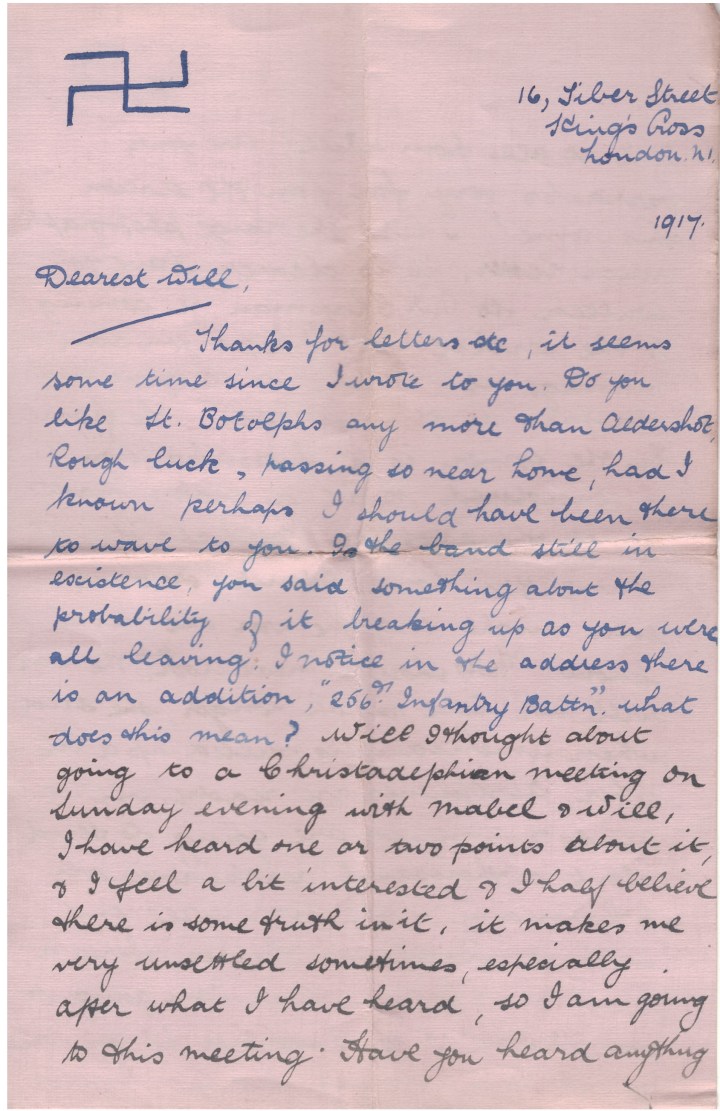 16, Tiber Street
King's Cross
London. N1.
1917.
Dearest Will,
Thanks for letters etc, it seems
some time since I wrote to you. Do you
like St. Botolphs any more than Aldershot,
Rough luck, passing so near home, had I
known perhaps I should have been there
to wave to you. Is the band still in
existence, you said something about the
probability of it breaking up as you were
all leaving. I notice in the address there
is an addition, "256th Infantry Battn". what
does this mean? Will I thought about
going to a Christadephian meeting on
Sunday evening with Mabel & Will,
I have heard one or two points about it,
& I feel a bit interested & I half believe
there is some truth in it, it makes me
very unsettled sometimes, especially
after what I have heard, so I am going
to this meeting. Have you heard anything